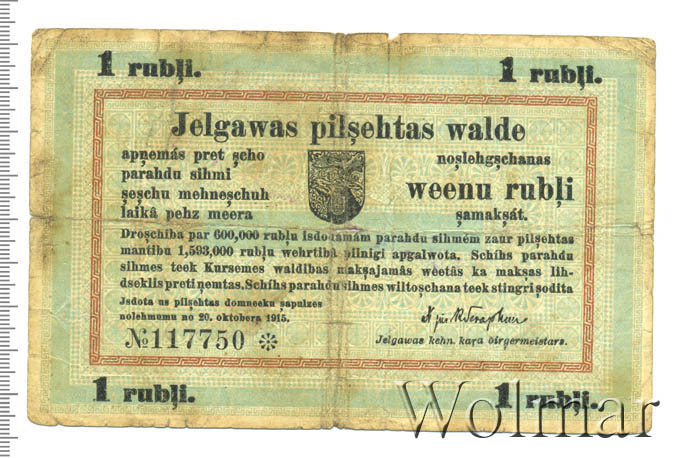 1 rubļi. 1 rubļi.
Jelgawas pilşehtas walde
apņemás pret şcho noşlehgşchanas
parahdu sihmi
şeşchu mehneşchuh weenu rubļi
laikâ pehz meera şamakşát.
Droşchiba par 600,000 rubļu isdodamám parahdu sihmém zaur pilşehtas
mantibu 1,593,000 rubļu wehrtibâ pilnigi apgalwota. Schíhs parahdu
sihmes teek Kursemes waldibas makşajamás weetâs ka makşas lih-
dseklis preti ņemtas. Schíhs parahdu sihmes wiltoşchana teek stingri şodita
Jsdota us pilşehtas domneeku şapulzes
nolehmumu no 20. oktobera 1915.
№117750 ※ Jelgawas kehn. kaŗa birgermeistars.
1 rubļi. 1 rubļi.
Wolmar